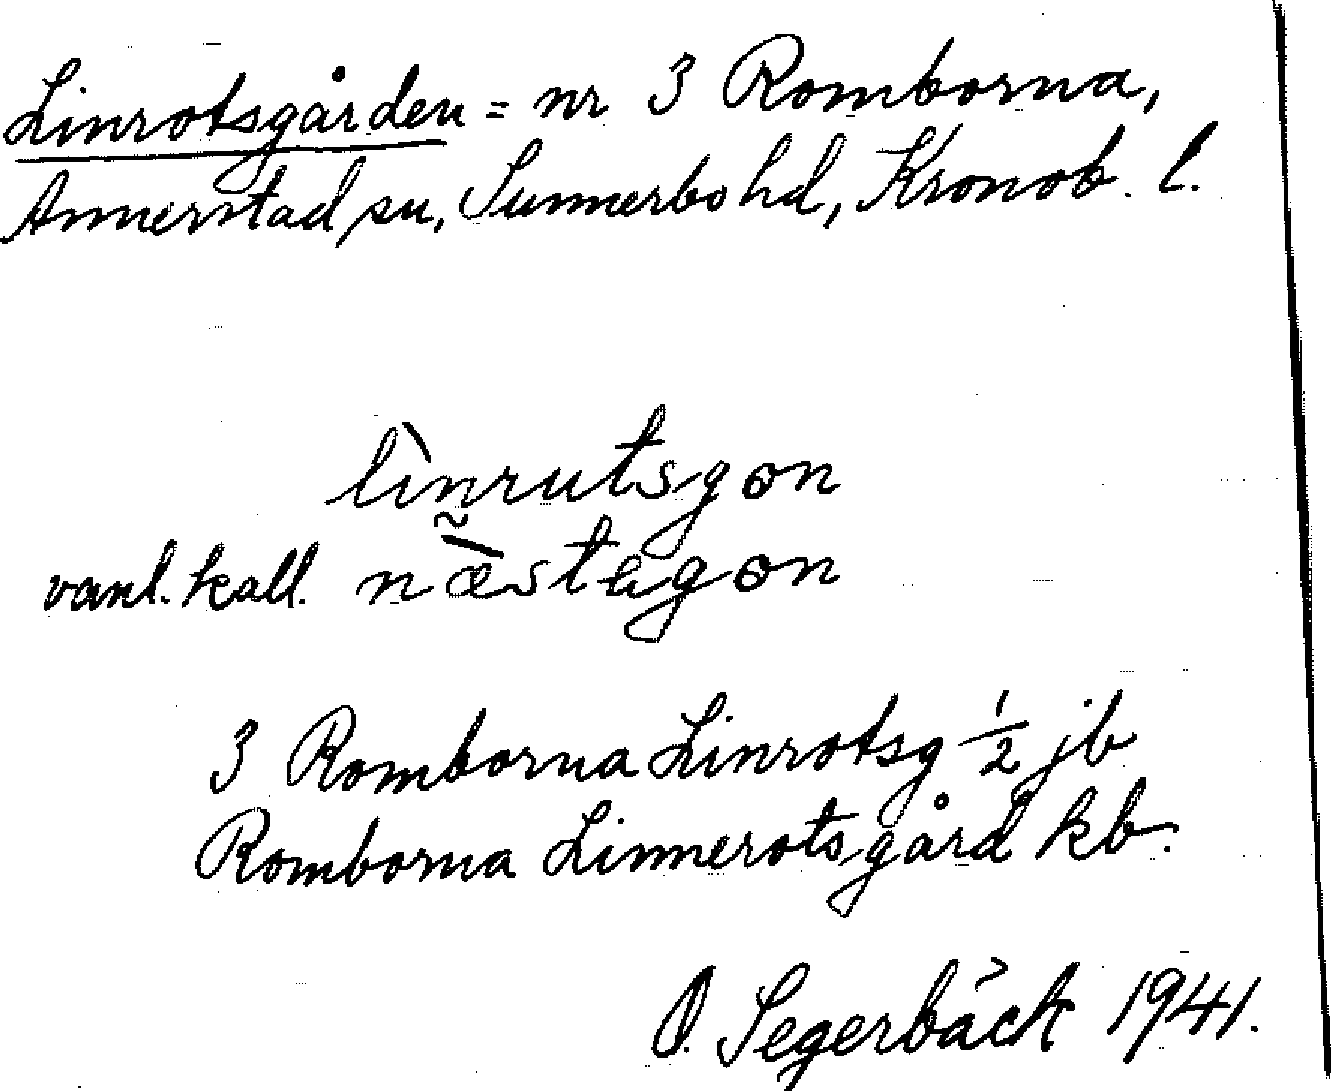 Linrotsgården = nr 3 Romborna,
Annerstad sn, Sunnerbo hd, Kronob. l.
lìnrutsgon
vanl. kall. næ̀̃stagon
3 Romborna Linrotsg ½ jb
Romborna Linnerotsgård kb.
O. Segerbäck 1941.